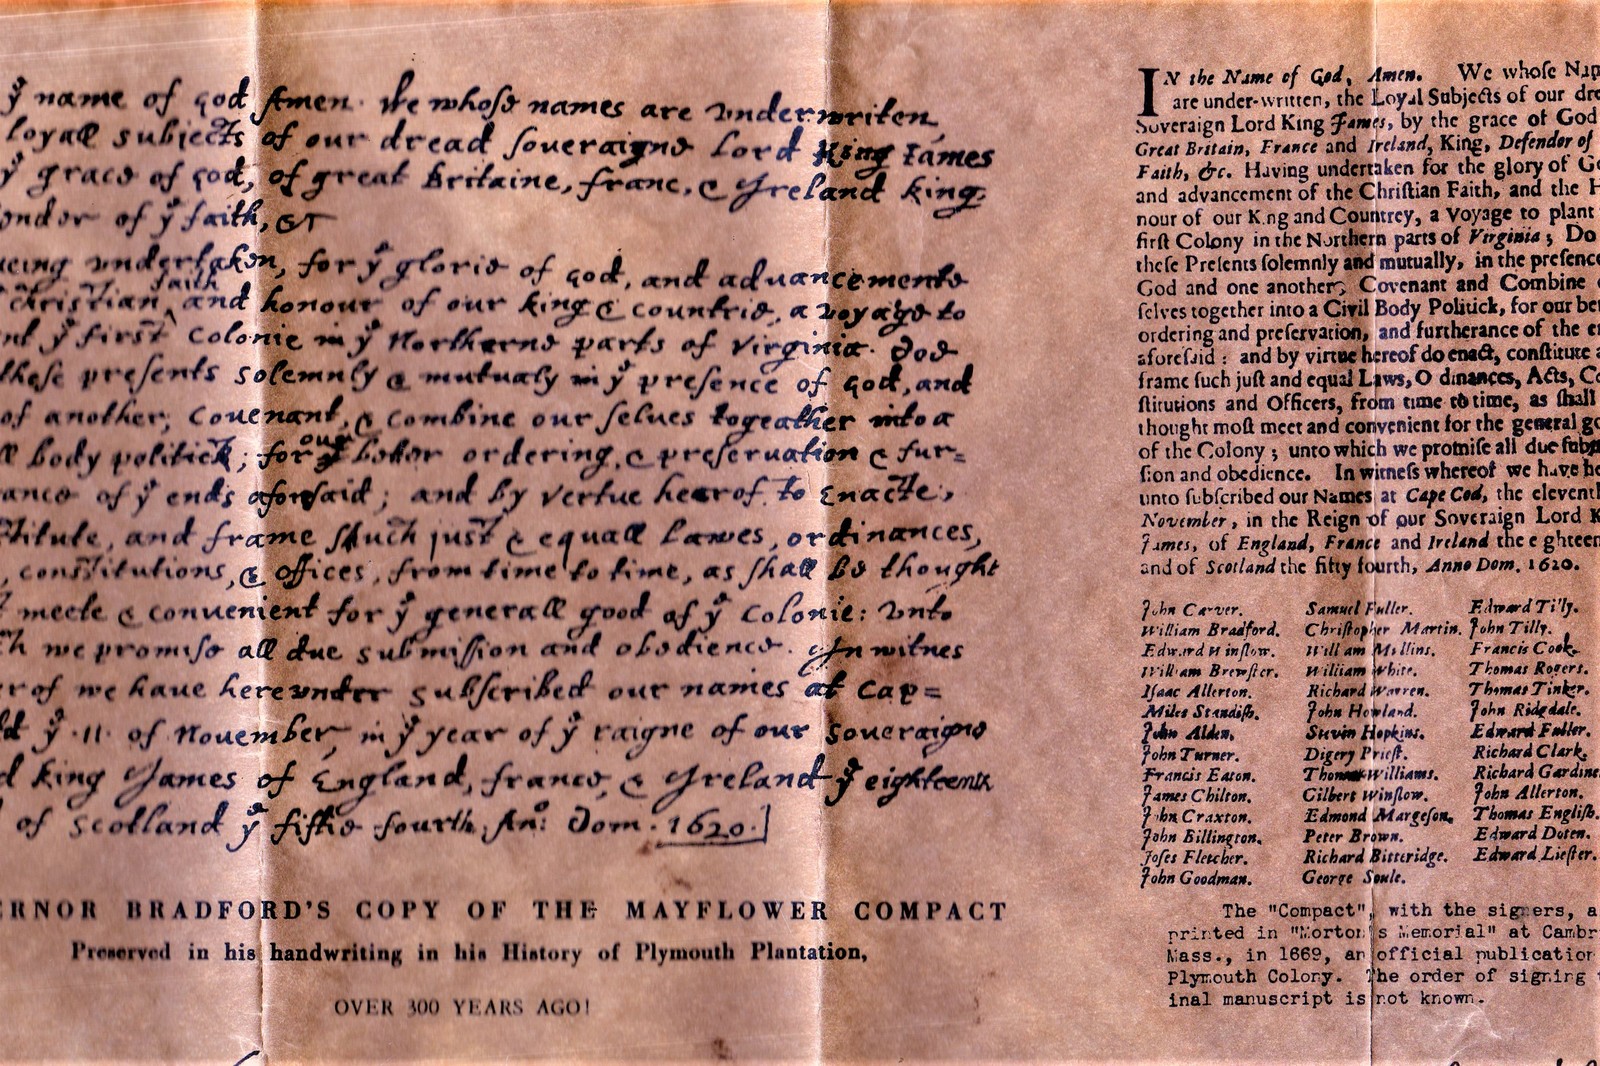 yͤ name of god Amen. We whoſe names are vnderwriten,
loyall subjects of our dread ſoveraigne Lord King Iames
yͤ grace of God, of great Britaine, franc, & Ireland king,
of yͤ faith, &c
vndertaken, for yͤ glorie of god, and advancemente
christian faith and honour of our king & countrie, a voyage to
yͤ first colonie in yͤ Northerne parts of Virginia. doe
theſe preſents solemnly & mutualy in yͤ preſence of god, and
of another; covenant, & combine our ſelves togeather into a
body politick; for our better ordering, & preſervation & fur=
of yͤ ends aforeſaid; and by vertue hearof to Enacte,
and frame ſhuch just & equall lawes, ordinances,
constitutions, & offices, from time to time, as ſhall be thought
meete & convenient for yͤ generall good of yͤ colonie: vnto
we promiſe all due submiſſion and obedience. In witnes
we have herevnder subſcribed our names at cap=
yͤ ·11· of November, in yͤ year of yͤ raigne of our soveraigne
king James of England, france, & Ireland yͤ eighteenth
of Scotland yͤ fiftie fourth. Anͦ: Dom. 1620.]
ERNOR BRADFORD'S COPY OF THE MAYFLOWER COMPACT
Preserved in his handwriting in his History of Plymouth Plantation,
OVER 300 YEARS AGO!
IN the Name of God, Amen. We whoſe
are under-written, the Loyal Subjects of our
Soveraign Lord King James, by the grace of God
Great Britain, France and Ireland, King, Defender of
Faith, &c. Having undertaken for the glory of
and advancement of the Chriſtian Faith, and the
nour of our King and Countrey, a Voyage to plant
firſt Colony in the Northern parts of Virginia; Do
theſe Preſents ſolemnly and mutually, in the preſence
God and one another, Covenant and Combine
ſelves together into a Civil Body Politick, for our
ordering and preſervation, and furtherance of the
aforeſaid: and by virtue hereof do enact, conſtitute
frame ſuch juſt and equal Laws, O dinances, Acts,
ſtitutions and Officers, from time to time, as ſhall
thought moſt meet and convenient for the general
of the Colony; unto which we promiſe all due
ſion and obedience. In witneſs whereof we have
unto ſubſcribed our Names at Cape Cod, the eleventh
November, in the Reign of our Soveraign Lord
James, of England, France and Ireland the e ghteen
and of Scotland the fifty fourth, Anno Dom. 1620.
John Carver. Samuel Fuller. Edward Tilly.
William Bradford. Chriſtopher Martin. John Tilly.
Edward Winſlow. Will am Mullins. Francis Cook.
William Brewſter. William White. Thomas Rogers.
Iſaac Allerton. Richard Warren. Thomas Tinker.
Miles Standiſh. John Howland. John Ridgdale.
John Alden. Steven Hopkins. Edward Fuller.
John Turner. Digery Prieſt. Richard Clark.
Francis Eaton. Thomas Williams. Richard Gardine
James Chilton. Gilbert Winſlow. John Allerton.
John Craxton. Edmond Margeſon. Thomas Engliſh.
John Billington. Peter Brown. Edward Doten.
Joſes Fletcher. Richard Bitteridge. Edward Lieſter.
John Goodman. George Soule.
The "Compact", with the signers,
printed in "Morton's Memorial" at
Mass., in 1669, an official publication
Plymouth Colony. The order of signing
inal manuscript is not known.